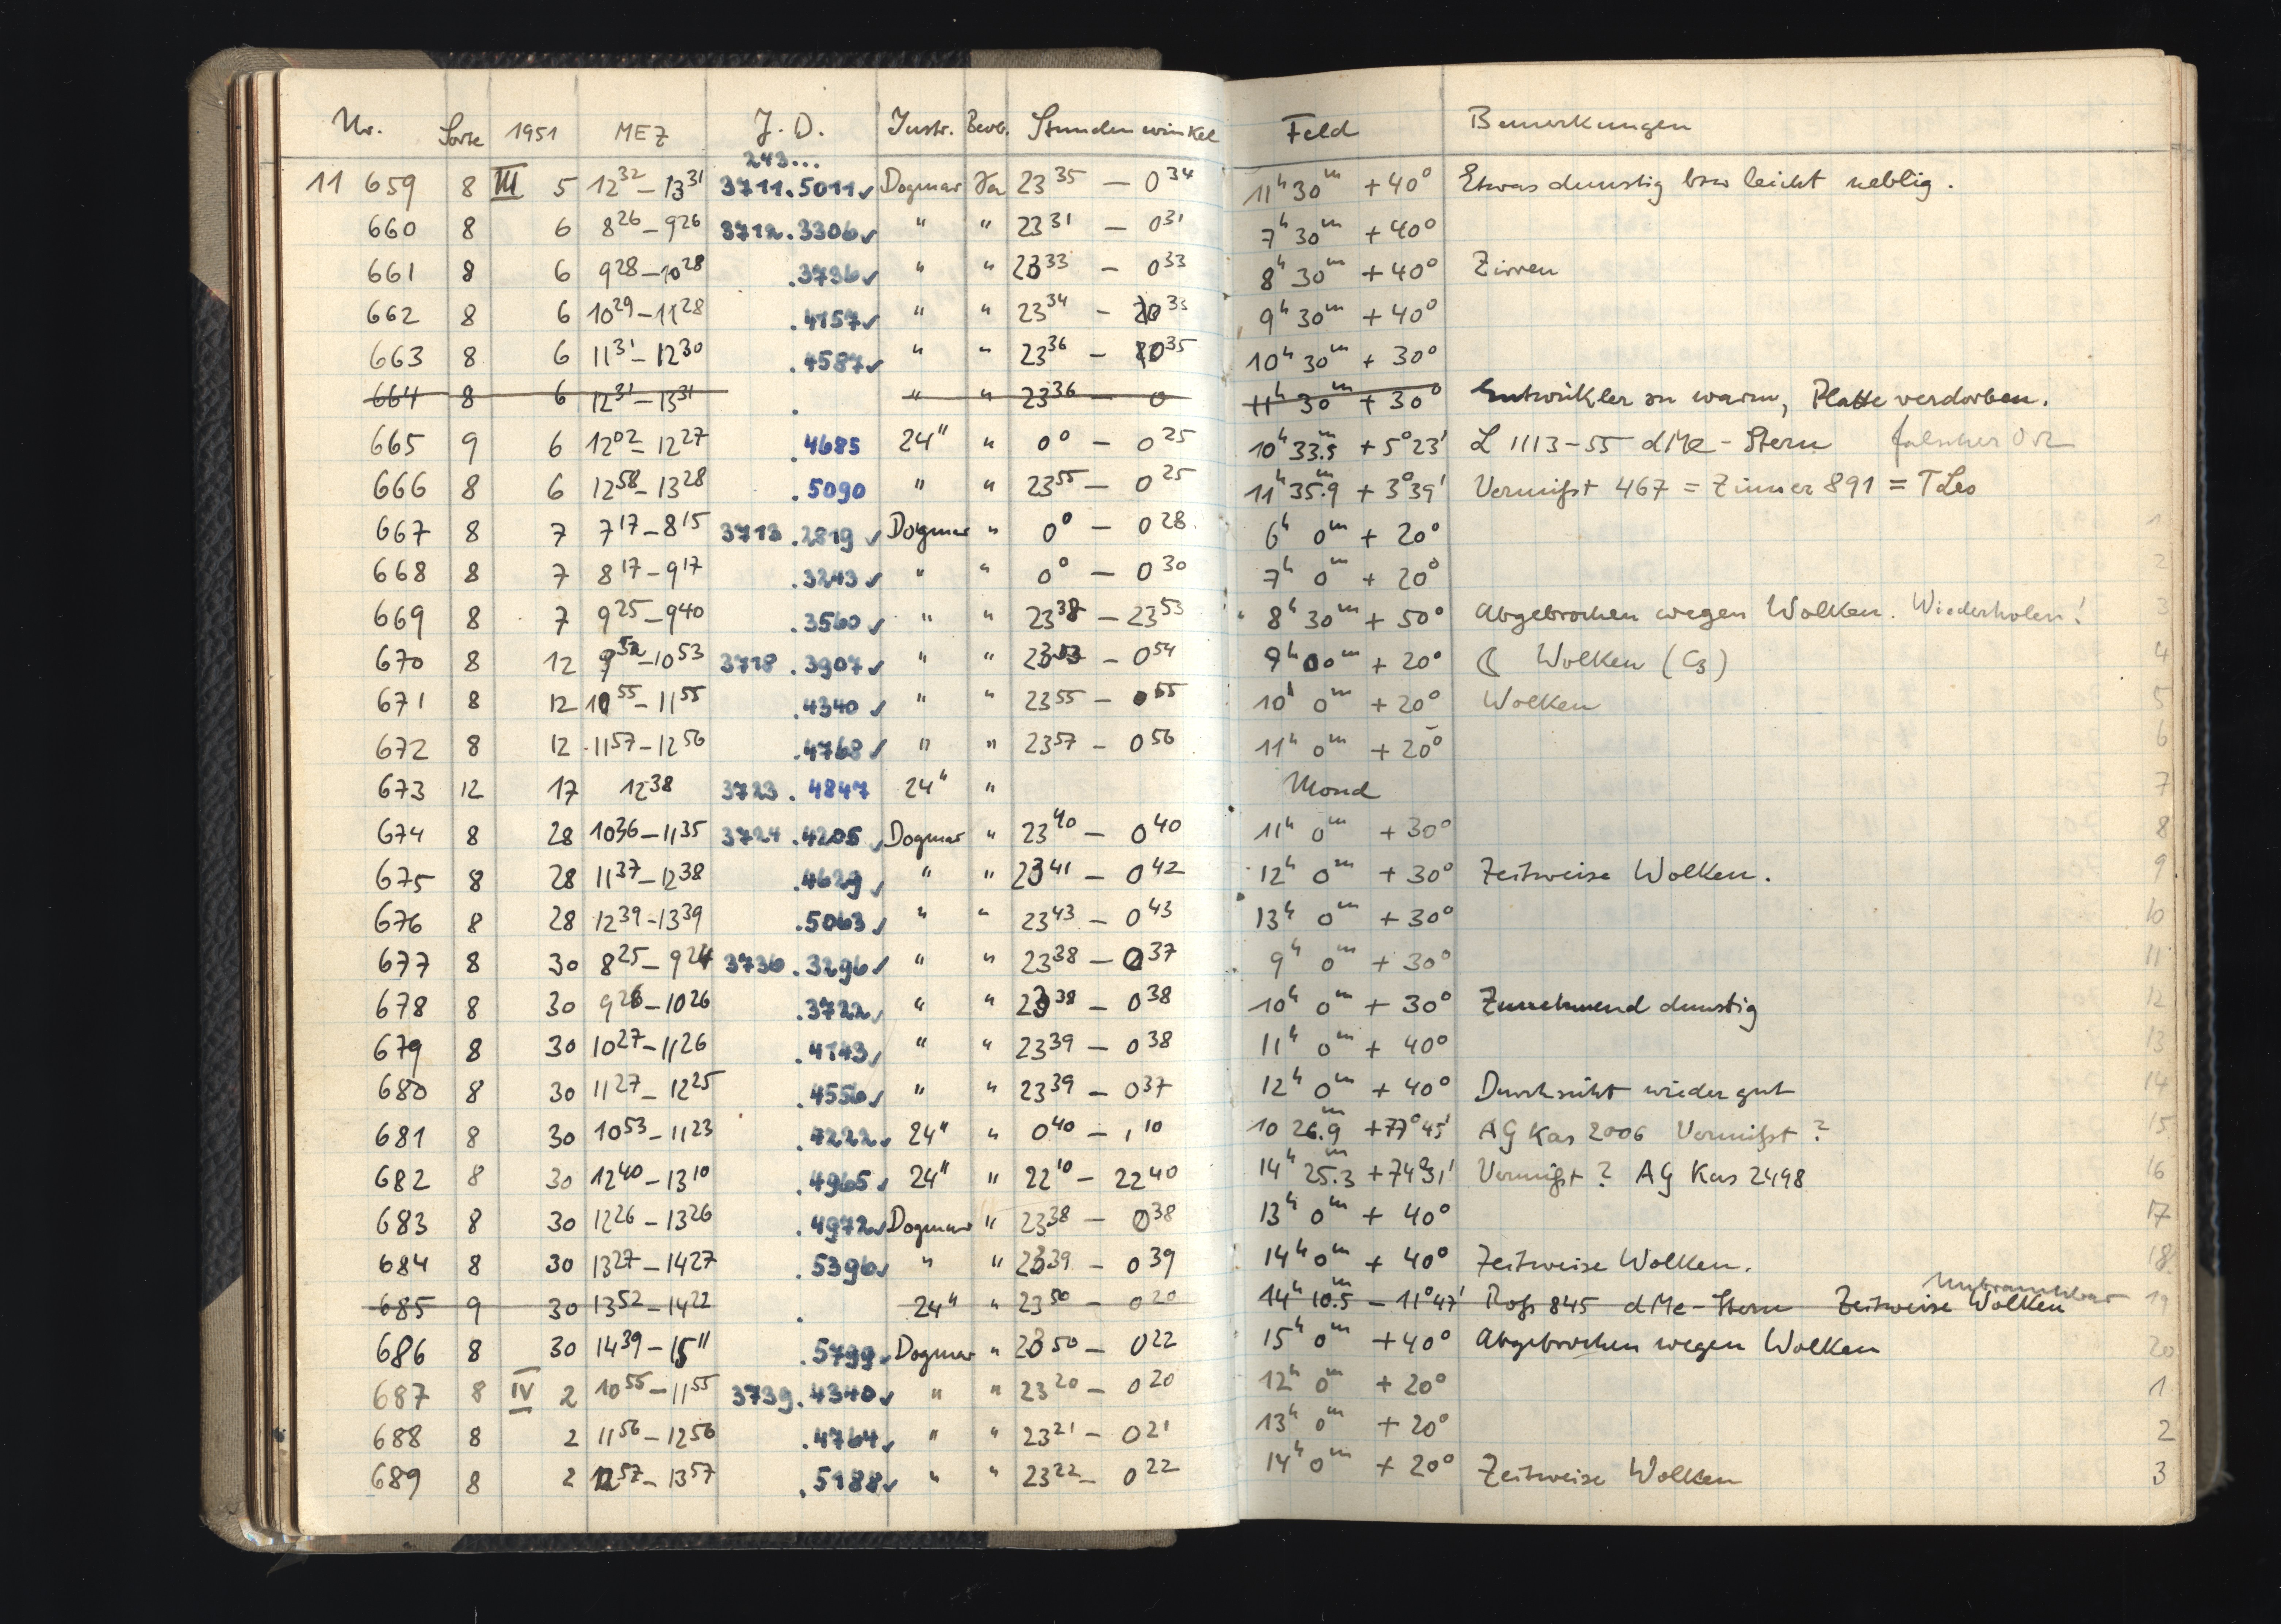 Nr. Sorte 1951 MEZ J. D. Instr. Beob. Stundenwinkel Feld Bemerkungen
243...
11 659 8 III 5 12 32 – 13 31 3711.5011 ✓ Dogmar Ja 23 35 – 0 34 11h 30m + 40° Etwas dunstig bzw leicht neblig.
660 8 6 8 26 – 9 26 3712.3306 ✓ " " 23 31 – 0 31 7h 30m + 40°
661 8 6 9 28 – 10 28 .3736 ✓ " " 23 33 – 0 33 8h 30m + 40° Zirren
662 8 6 10 29 – 11 28 .4157 ✓ " " 23 34 – 0 33 9h 30m + 40°
663 8 6 11 31 – 12 30 .4587 ✓ " " 23 36 – 0 35 10h 30m + 30°
664 8 6 12 31 – 13 31 . " " 23 36 – 0 11h 30m + 30° Entwickler zu warm, Platte verdorben.
665 9 6 12 02 – 12 27 .4685 24" " 0 0 – 0 25 10h 33.5m + 5°23' L 1113-55 dMe-Stern falscher Ort
666 8 6 12 58 – 13 28 .5090 " " 23 55 – 0 25 11h 35.9m + 3°39' Vermißt 467 = Zinner 891 = T Leo
667 8 7 7 17 – 8 15 3713.2819 ✓ Dogmar " 0 0 – 0 28 6h 0m + 20° 1
668 8 7 8 17 – 9 17 .3243 ✓ " " 0 0 – 0 30 7h 0m + 20° 2
669 8 7 9 25 – 9 40 .3560 ✓ " " 23 38 – 23 53 8h 30m + 50° Abgebrochen wegen Wolken. Wiederholen! 3
670 8 12 9 52 – 10 53 3718.3907 ✓ " " 23 53 – 0 54 9h 00m + 20° ☾ Wolken (C3) 4
671 8 12 10 55 – 11 55 .4340 ✓ " " 23 55 – 0 55 10h 0m + 20° Wolken 5
672 8 12 11 57 – 12 56 .4768 ✓ " " 23 57 – 0 56 11h 0m + 20° 6
673 12 17 12 38 3723.4847 24" " Mond 7
674 8 28 10 36 – 11 35 3724.4205 ✓ Dogmar " 23 40 – 0 40 11h 0m + 30° 8
675 8 28 11 37 – 12 38 .4629 ✓ " " 23 41 – 0 42 12h 0m + 30° Zeitweise Wolken. 9
676 8 28 12 39 – 13 39 .5063 ✓ " " 23 43 – 0 43 13h 0m + 30° 10
677 8 30 8 25 – 9 24 3736.3296 ✓ " " 23 38 – 0 37 9h 0m + 30° 11
678 8 30 9 26 – 10 26 .3722 ✓ " " 23 38 – 0 38 10h 0m + 30° Zunehmend dunstig 12
679 8 30 10 27 – 11 26 .4143 ✓ " " 23 39 – 0 38 11h 0m + 40° 13
680 8 30 11 27 – 12 25 .4556 ✓ " " 23 39 – 0 37 12h 0m + 40° Durchsicht wieder gut 14
681 8 30 10 53 – 11 23 .4222 ✓ 24" " 0 40 – 1 10 10 26.9m +77°45' AG Kas 2006 Vermißt? 15
682 8 30 12 40 – 13 10 .4965 ✓ 24" " 22 10 – 22 40 14h 25.3m +74°31' Vermißt? AG Kas 2498 16
683 8 30 12 26 – 13 26 .4972 ✓ Dogmar " 23 38 – 0 38 13h 0m + 40° 17
684 8 30 13 27 – 14 27 .5396 ✓ " " 23 39 – 0 39 14h 0m + 40° Zeitweise Wolken. 18
685 9 30 13 52 – 14 22 . 24" " 23 50 – 0 20 14h 10.5m – 11°47' Roß 845 dMe-Stern Zeitweise Wolken Unbrauchbar 19
686 8 30 14 39 – 15 11 .5799 ✓ Dogmar " 23 50 – 0 22 15h 0m + 40° Abgebrochen wegen Wolken 20
687 8 IV 2 10 55 – 11 55 3739.4340 ✓ " " 23 20 – 0 20 12h 0m + 20° 1
688 8 2 11 56 – 12 56 .4764 ✓ " " 23 21 – 0 21 13h 0m + 20° 2
689 8 2 12 57 – 13 57 .5188 ✓ " " 23 22 – 0 22 14h 0m + 20° Zeitweise Wolken 3